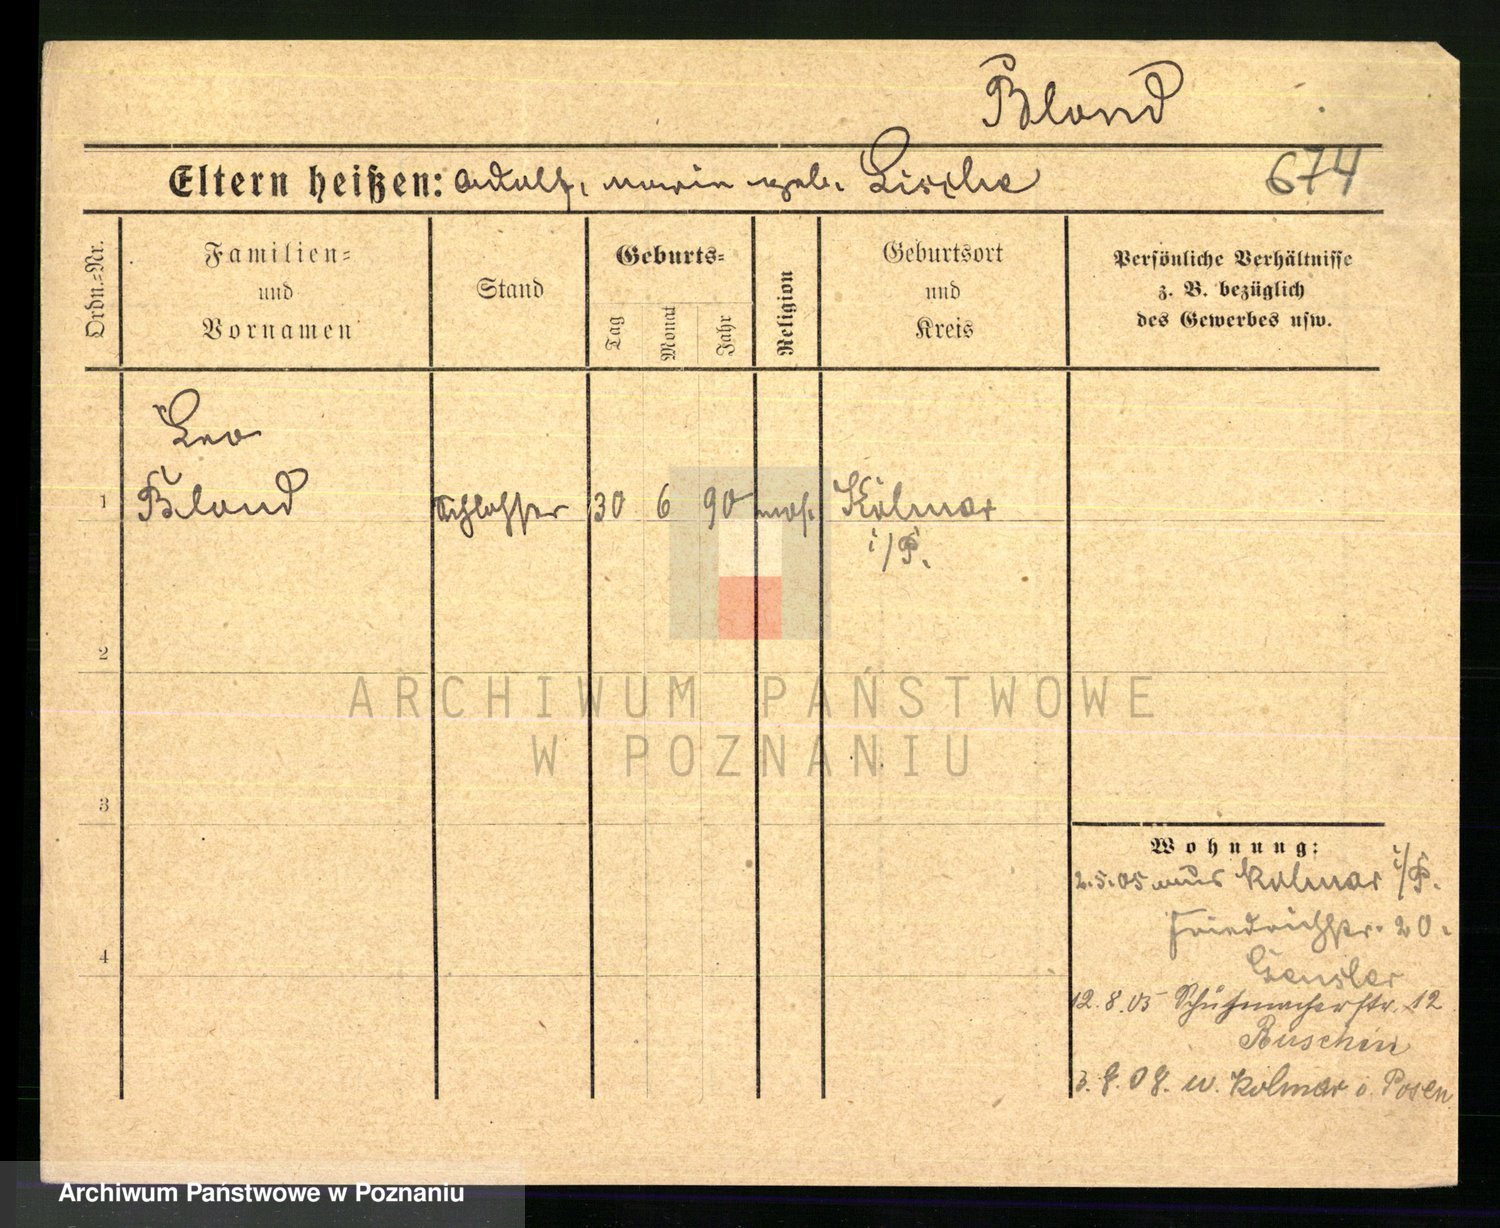 Bland
Eltern heißen: Adolf, Marie geb. Lische
674
Ordn.-Nr.
Familien-
und
Vornamen
Stand
Geburts-
Tag
Monat
Jahr
Religion
Geburtsort
und
Kreis
Persönliche Verhältnisse
z. B. bezüglich
des Gewerbes usw.
Leo
1 Bland Schlosser 30 6 90 mos. Kolmar
i/P.
2
ARCHIWUM PAŃSTWOWE
W POZNANIU
3
Wohnung:
2.5.05 aus Kolmar i/P.
Friedrichstr. 20.
4
12.8.05 Schuhmacherstr. 12
Buschin
3. 9. 08. n. Kolmar i. Posen
Archiwum Państwowe w Poznaniu